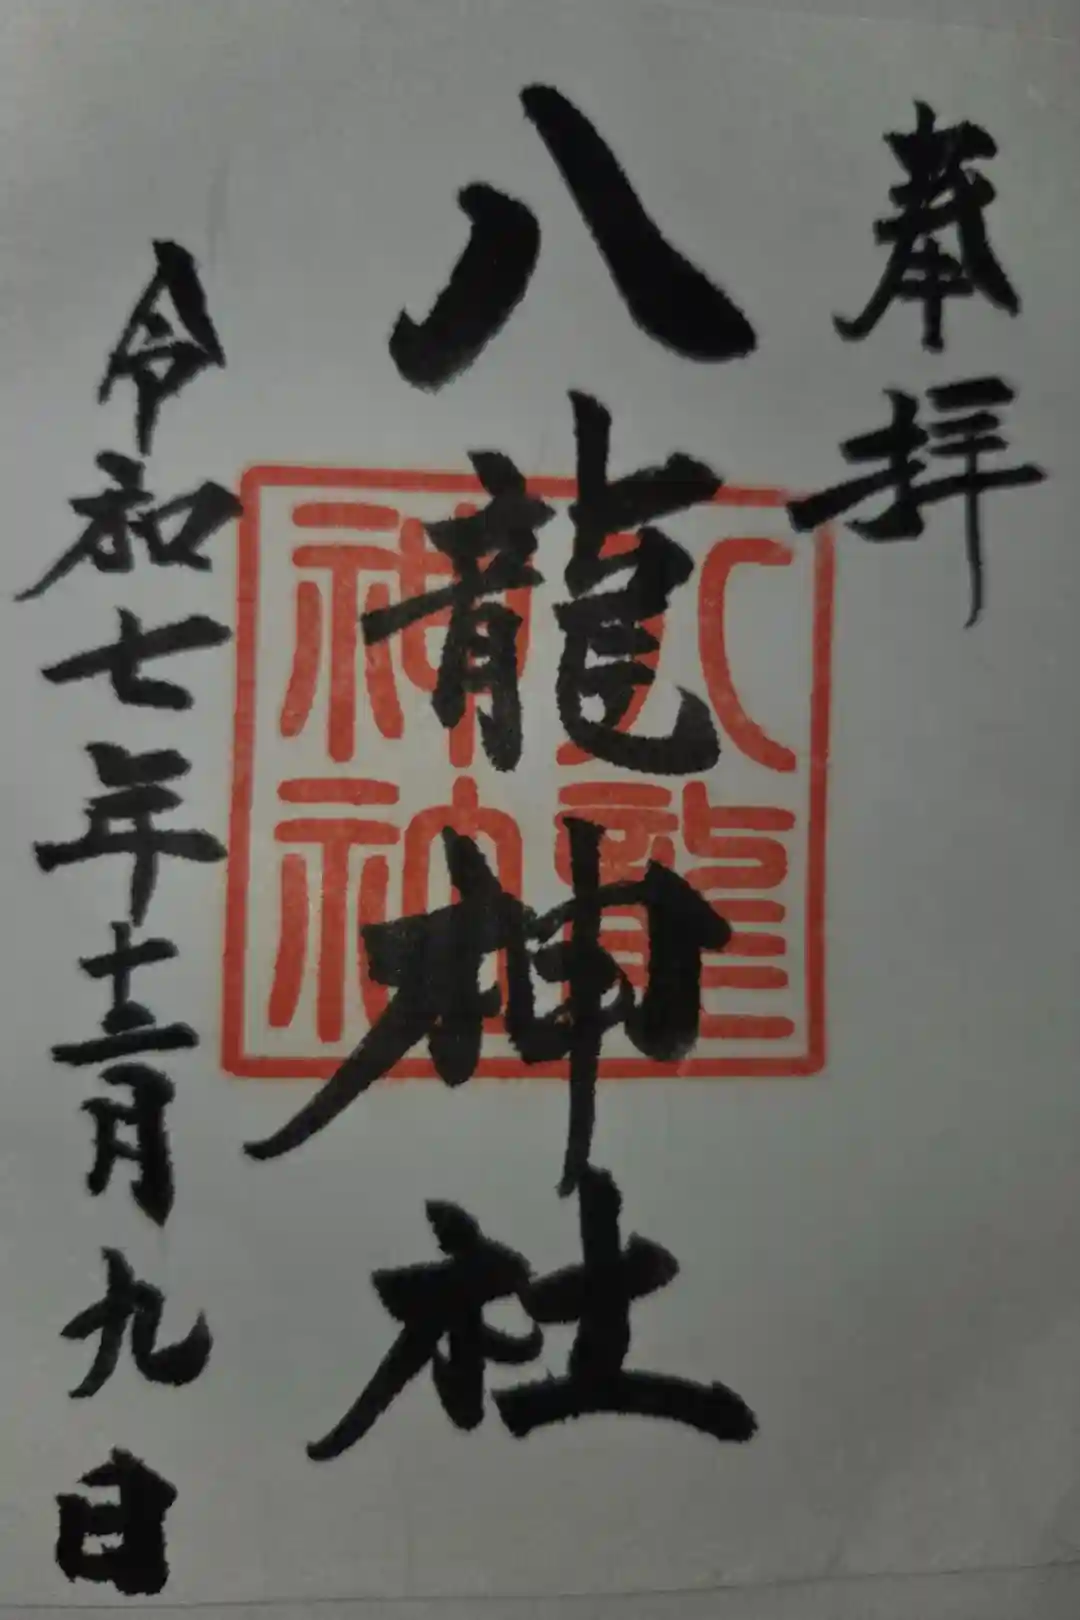 奉拝
八龍神社
令和七年十二月九日
八龍
神